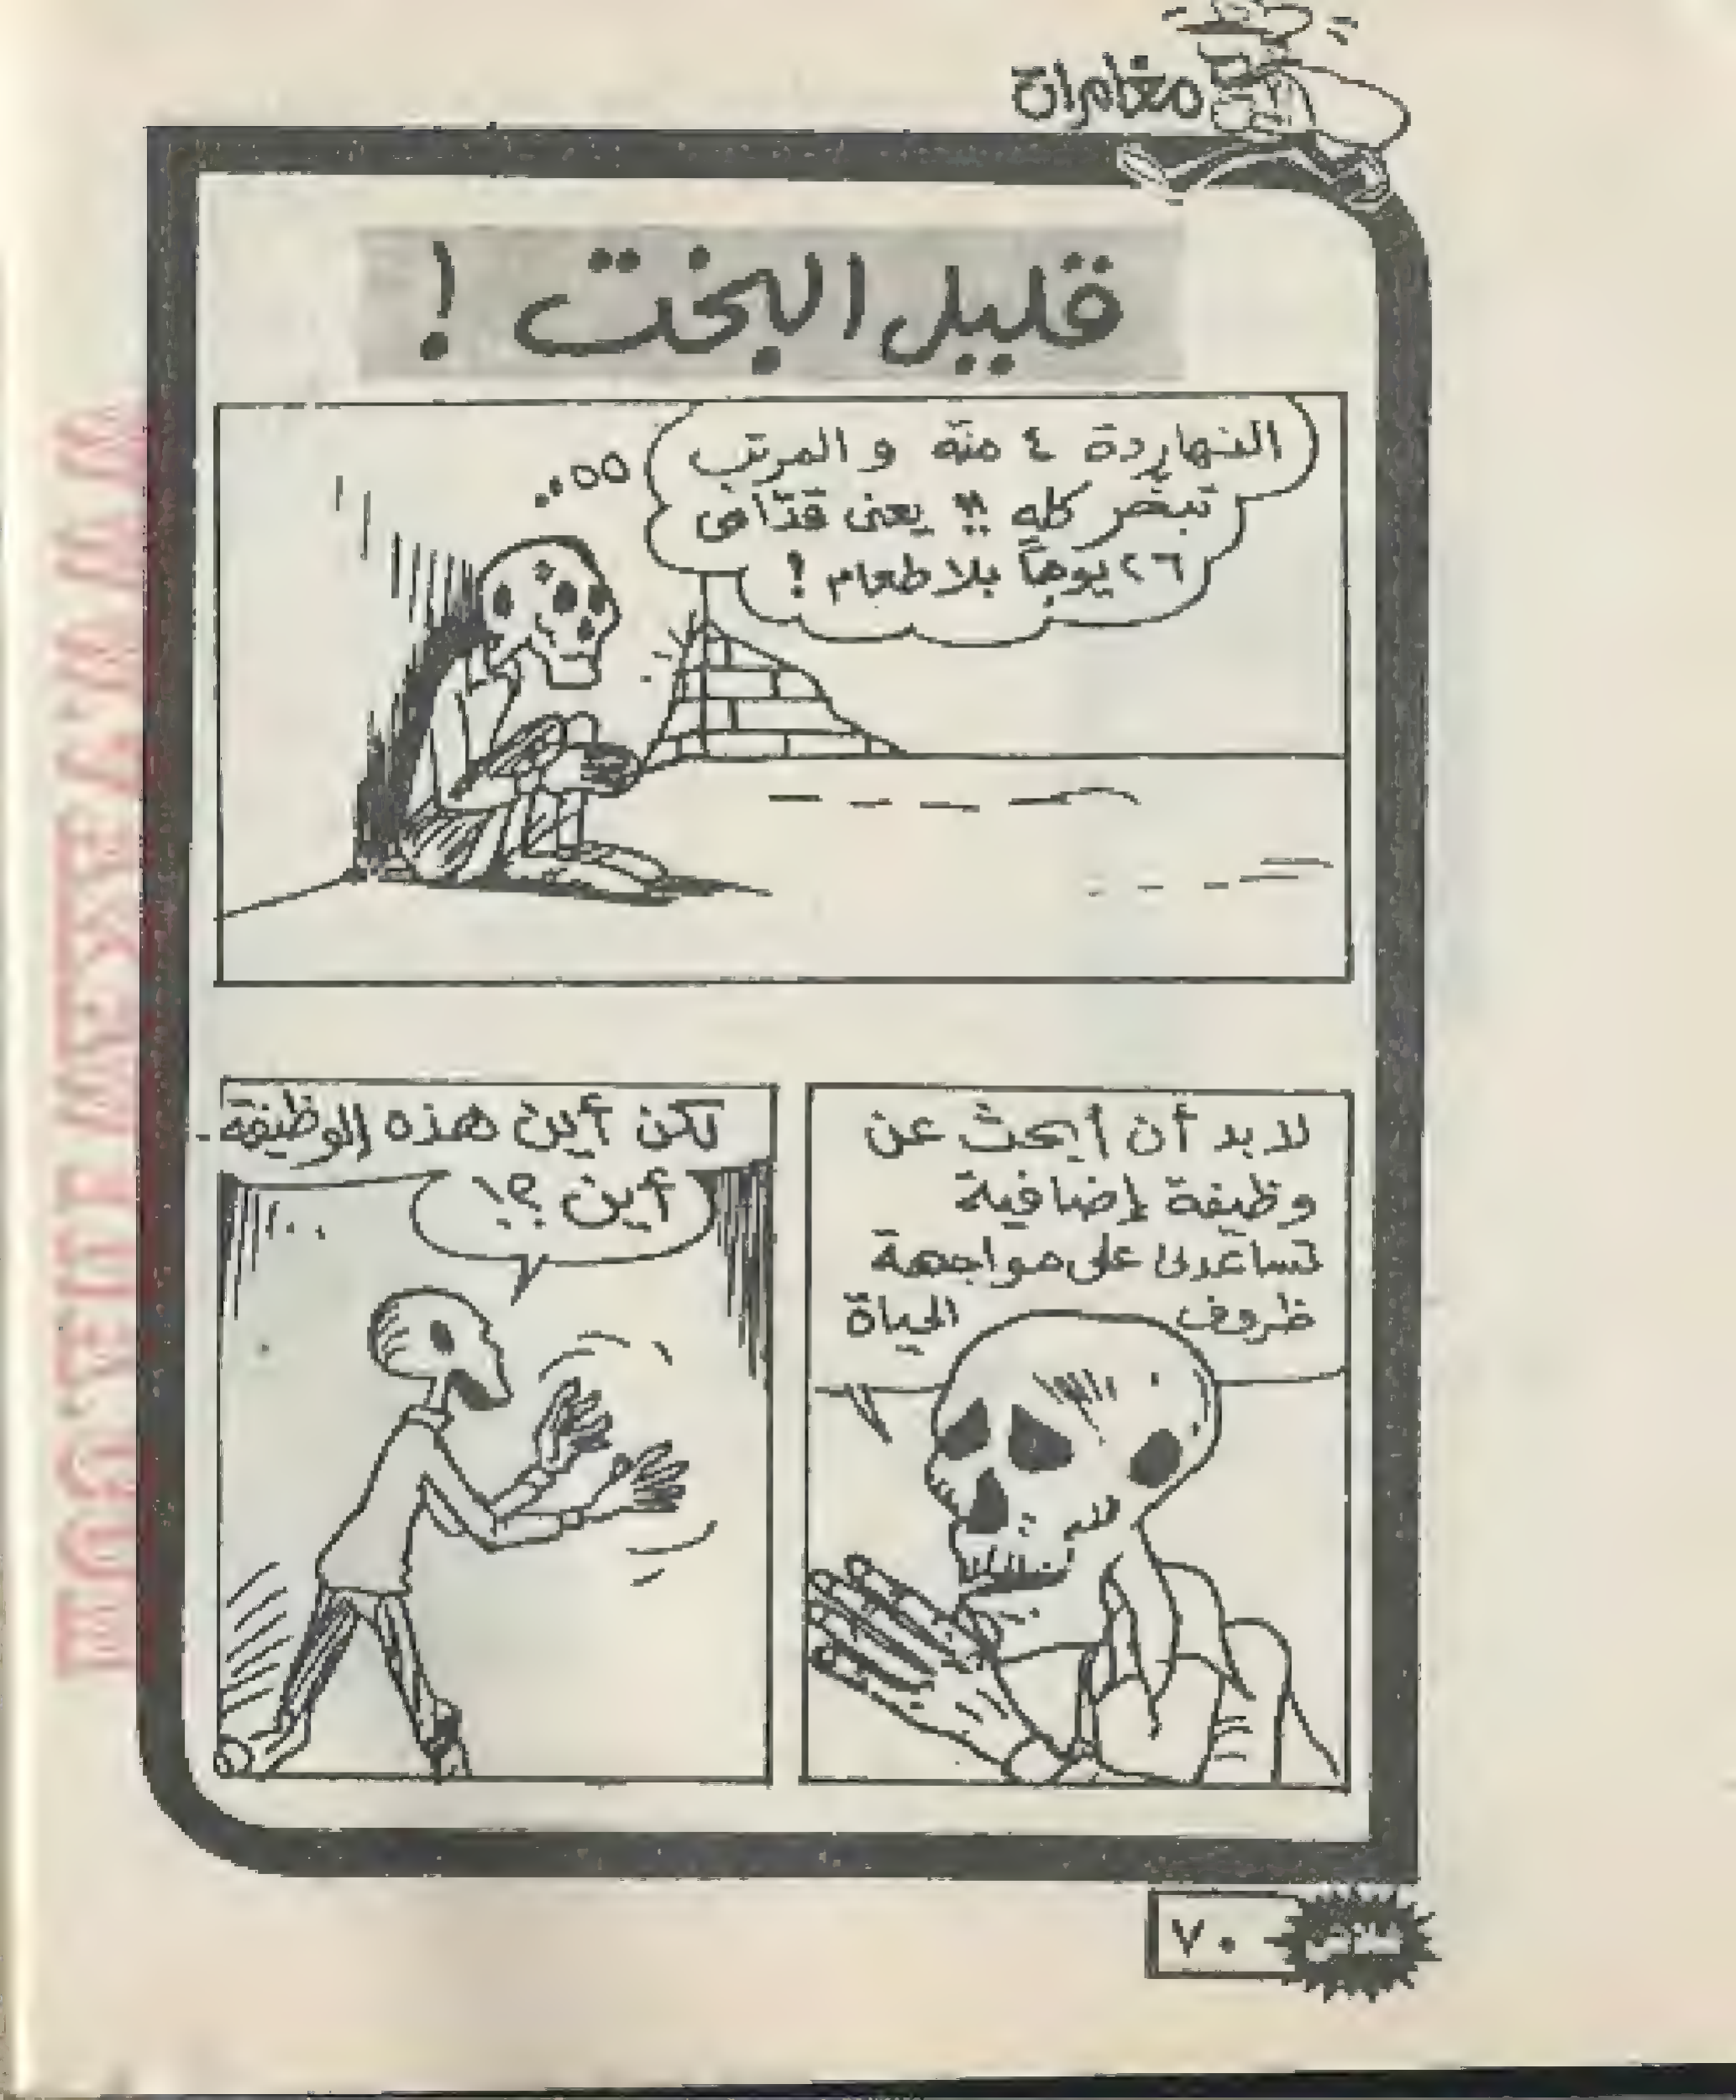 مغامرات
قليل البخت !
النهاردة ٤ منه والمرتب
تبخر كله !! يعنى قدّامى
٢٦ يوماً بلا طعام !
لابد أن أبحث عن
وظيفة إضافية
تساعدنى على مواجهة
ظروف الحياة
لكن أين هذه الوظيفة..
أين ؟!
فلاش
٧٠